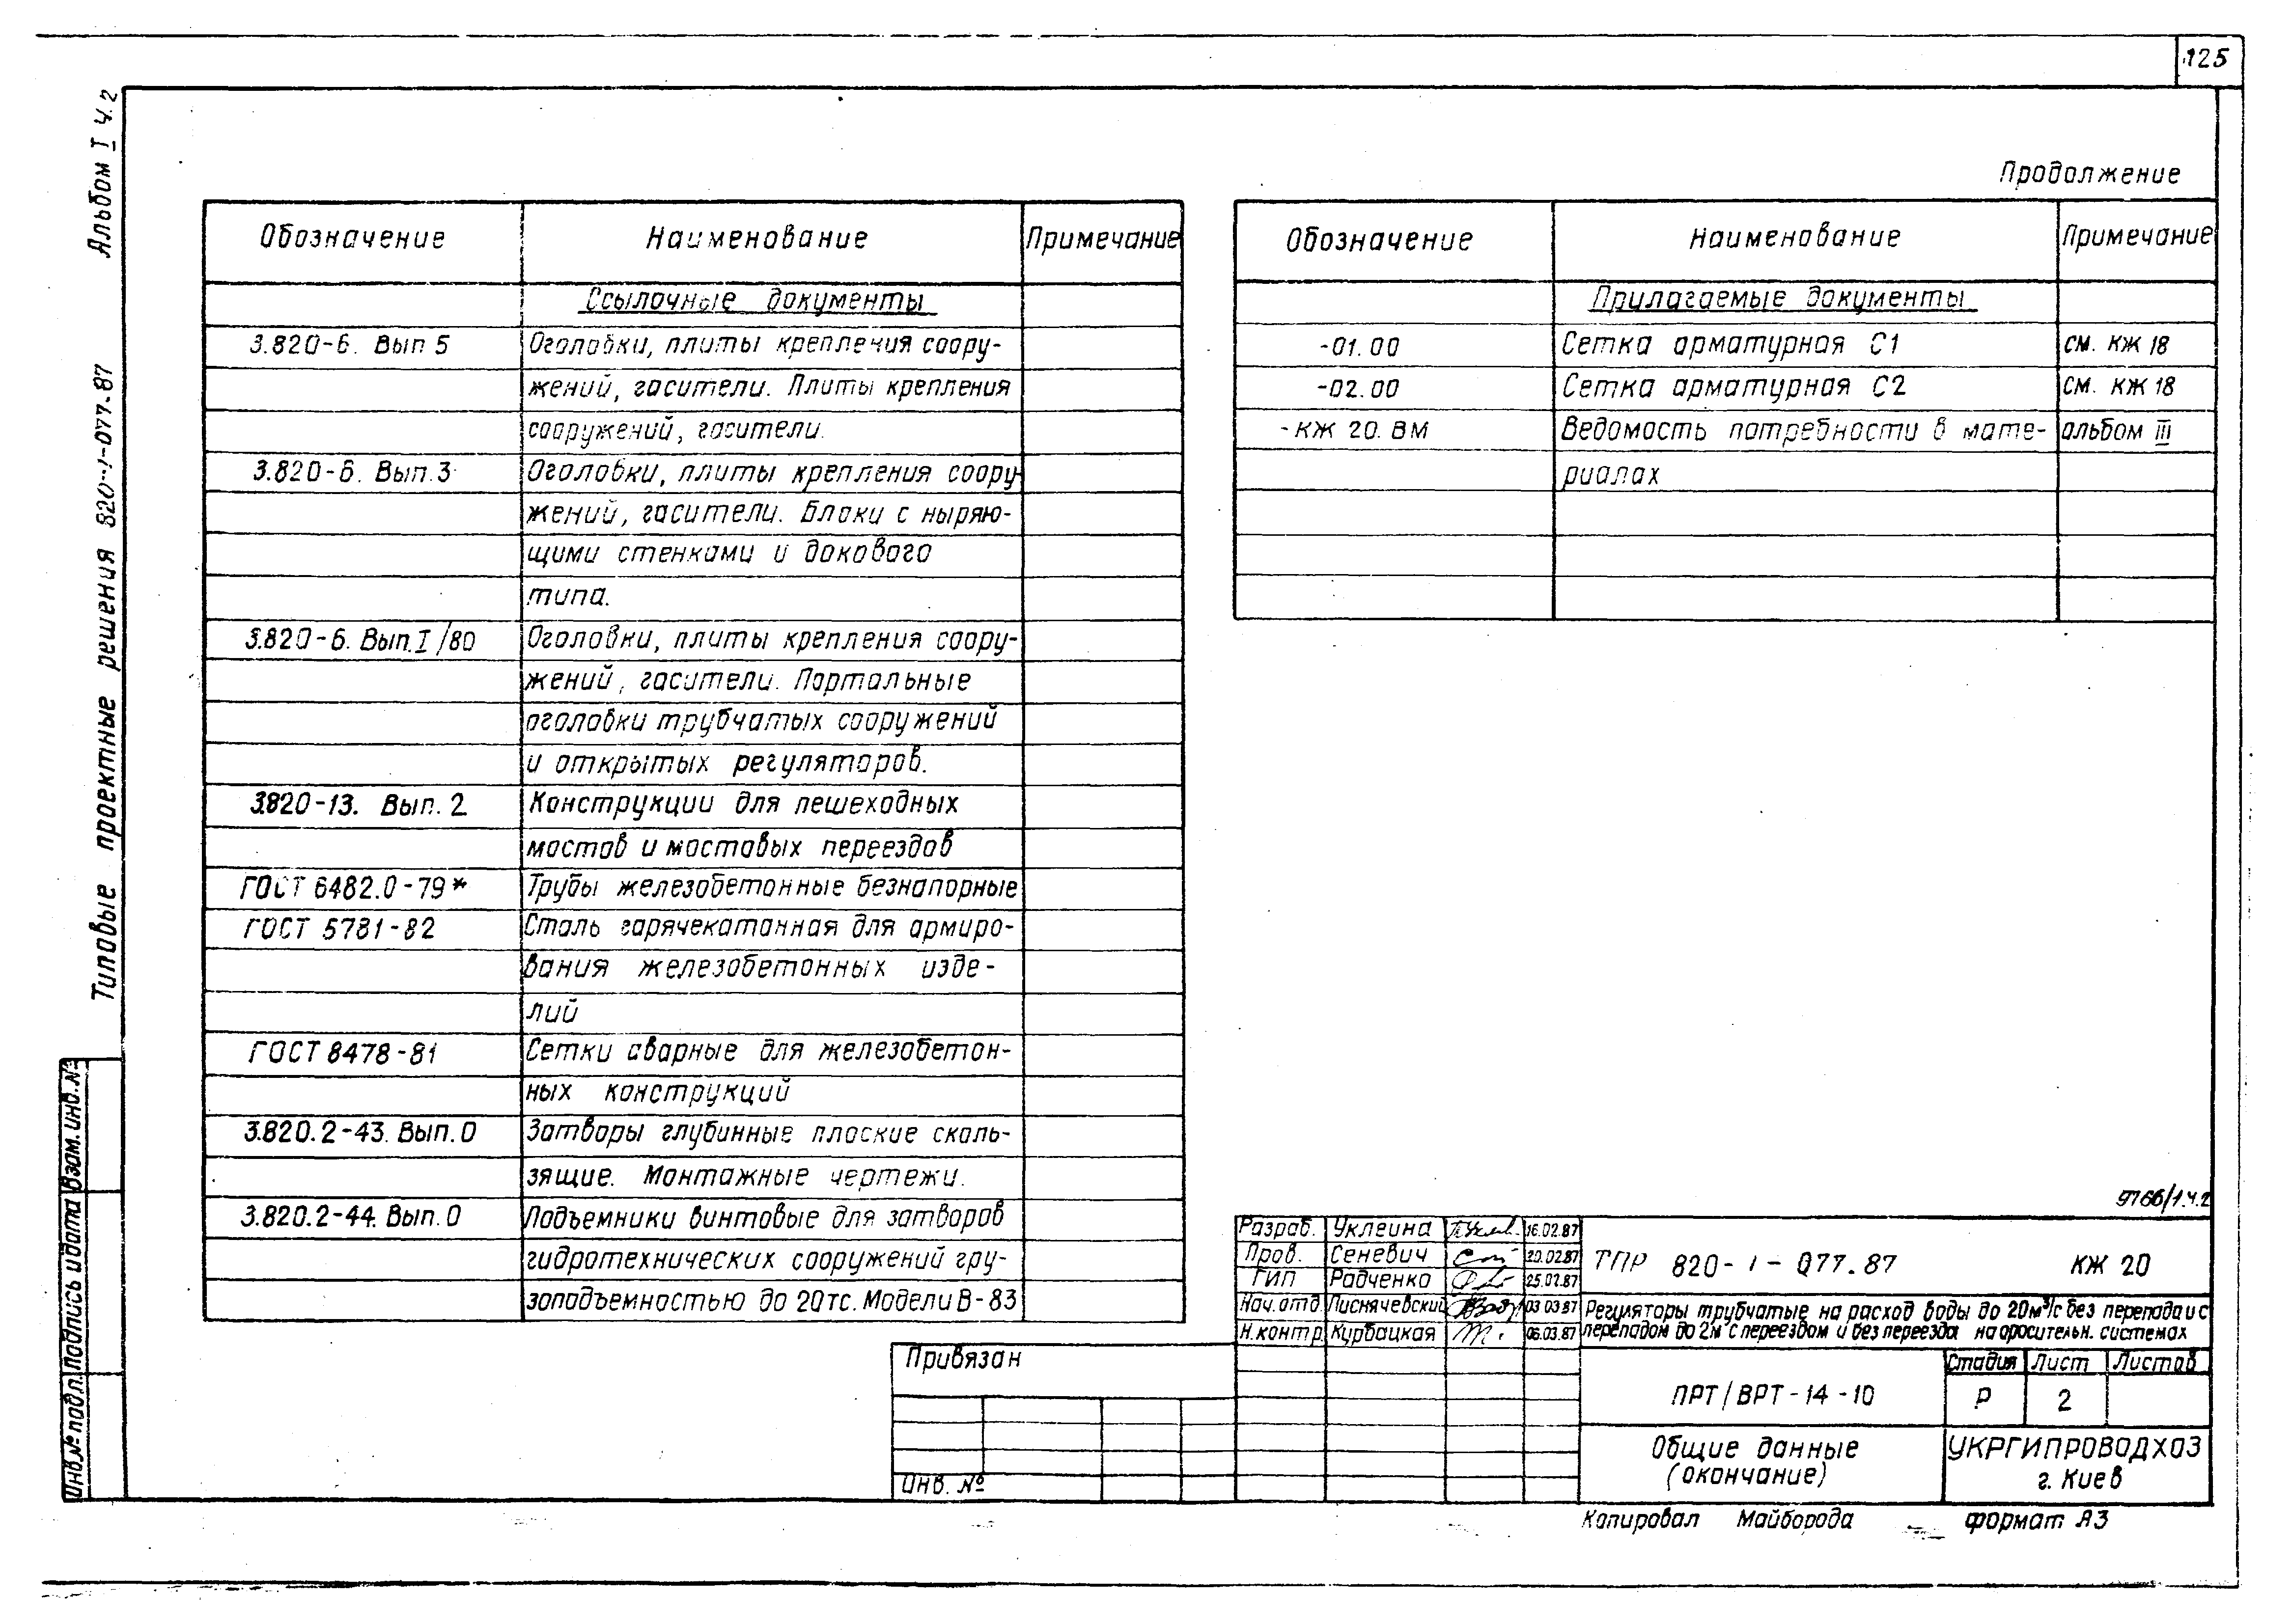 125
Альбом I ч.2
Типовые проектные решения 820-1-077.87
Продолжение
Обозначение Наименование Примечание
Ссылочные документы
3.820-6. Вып 5 Оголовки, плиты крепления соору-
жений, гасители. Плиты крепления
сооружений, гасители.
3.820-6. Вып.3 Оголовки, плиты крепления соору-
жений, гасители. Блоки с ныряю-
щими стенками и докового
типа.
3.820-6. Вып.I/80 Оголовки, плиты крепления соору-
жений, гасители. Портальные
оголовки трубчатых сооружений
и открытых регуляторов.
3.820-13. Вып. 2 Конструкции для пешеходных
мостов и мостовых переездов
ГОСТ 6482.0-79* Трубы железобетонные безнапорные
ГОСТ 5781-82 Сталь горячекатанная для армиро-
вания железобетонных изде-
лий
ГОСТ 8478-81 Сетки сварные для железобетон-
ных конструкций
3.820.2-43. Вып.0 Затворы глубинные плоские сколь-
зящие. Монтажные чертежи.
3.820.2-44. Вып.0 Подъемники винтовые для затворов
гидротехнических сооружений гру-
заподъемностью до 20тс. Модели В-83
Обозначение Наименование Примечание
Прилагаемые документы
-01.00 Сетка арматурная С1 см. КЖ 18
-02.00 Сетка арматурная С2 см. КЖ 18
-КЖ 20. ВМ Ведомость потребности в мате- альбом III
риалах
9766/1.ч.2
Разраб. Уклеина 16.02.87
Пров. Сеневич 20.02.87
ГИП Радченко 25.02.87
Нач.отд. Лиснячевский 03.03.87
Н.контр. Курбацкая 06.03.87
ТПР 820-1-077.87 КЖ 20
Регуляторы трубчатые на расход воды до 20м³/с без перепада и с
перепадом до 2м с переездом и без переезда на оросительн. системах
Стадия Лист Листов
ПРТ/ВРТ-14-10 Р 2
Общие данные
(окончание)
УКРГИПРОВОДХОЗ
г. Киев
Привязан
Инв. №
Копировал Майборода формат А3
Инв.№ подл. Подпись и дата Взам. инв.№